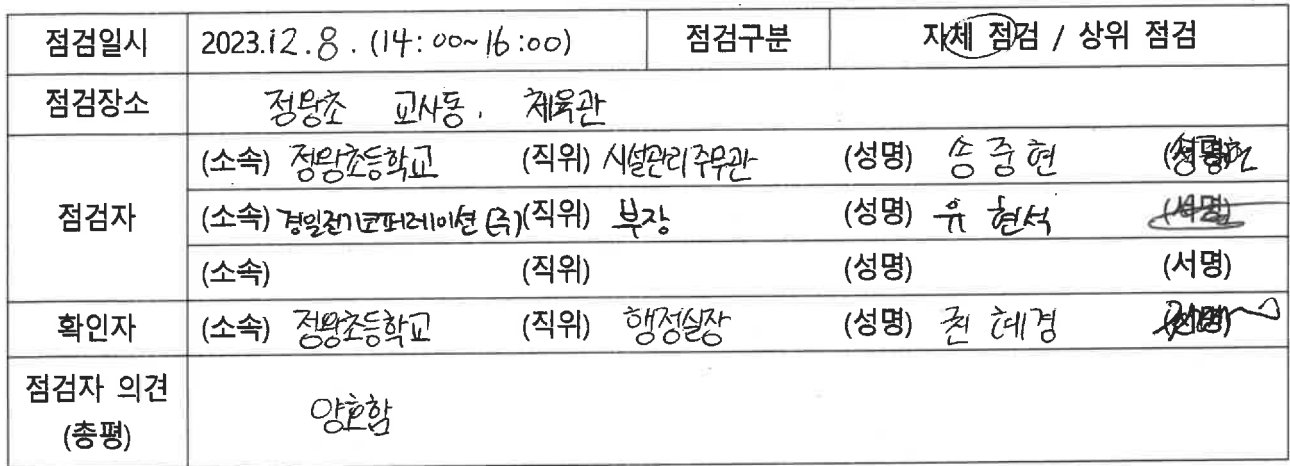 점검일시 2023.12.8. (14:00~16:00) 점검구분 자체 점검 / 상위 점검
점검장소 정왕초 교사동, 체육관
(소속) 정왕초등학교 (직위) 시설관리주무관 (성명) 송중현 (서명)
점검자 (소속) 경일전기코퍼레이션(주) (직위) 부장 (성명) 유현석 (서명)
(소속) (직위) (성명) (서명)
확인자 (소속) 정왕초등학교 (직위) 행정실장 (성명) 권혜경 (서명)
점검자 의견
(총평)
양호함